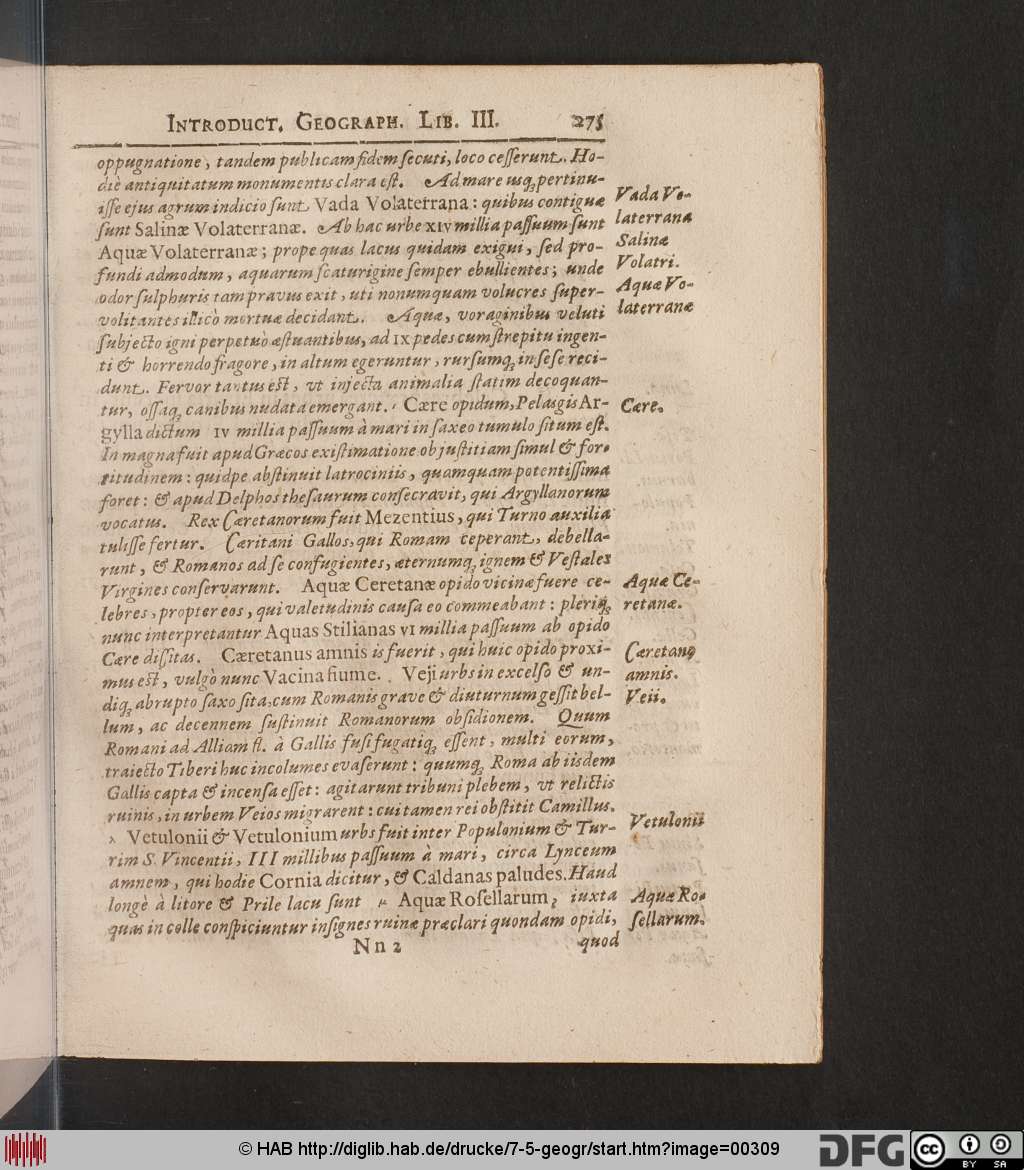 INTRODUCT. GEOGRAPH. LIB. III. 275
oppugnatione, tandem publicam fidem secuti, loco cesserunt. Ho-
diè antiquitatum monumentis clara est. Ad mare usq; pertinu-
isse ejus agrum indicio sunt Vada Volaterrana: quibus contiguæ
sunt Salinæ Volaterranæ. Ab hac urbe XIV millia passuum sunt
Aquæ Volaterranæ; prope quas lacus quidam exigui, sed pro-
fundi admodum, aquarum scaturigine semper ebullientes; unde
odor sulphuris tam pravus exit, uti nonumquam volucres super-
volitantes illicò mortuæ decidant. Aquæ, voraginibus veluti
subjecto igni perpetuò æstuantibus, ad IX pedes cum strepitu ingen-
ti & horrendo fragore, in altum egeruntur, rursumq; in sese reci-
dunt. Fervor tantus est, vt injecta animalia statim decoquan-
tur, ossaq; canibus nudata emergant. Cære opidum, Pelasgis Ar-
gylla dictum IV millia passuum à mari in saxeo tumulo situm est.
In magna fuit apud Græcos existimatione ob justitiam simul & for-
titudinem: quidpe abstinuit latrociniis, quamquam potentissima
foret: & apud Delphos thesaurum consecravit, qui Argyllanorum
vocatus. Rex Cæretanorum fuit Mezentius, qui Turno auxilia
tulisse fertur. Cæritani Gallos, qui Romam ceperant, debella-
runt, & Romanos ad se confugientes, æternumq; ignem & Vestales
Virgines conservarunt. Aquæ Ceretanæ opido vicinæ fuere ce-
lebres, propter eos, qui valetudinis causa eo commeabant: pleriq;
nunc interpretantur Aquas Stilianas VI millia passuum ab opido
Cære dissitas. Cæretanus amnis is fuerit, qui huic opido proxi-
mus est, vulgò nunc Vacina fiume. Veji urbs in excelso & un-
diq; abrupto saxo sita, cum Romanis grave & diuturnum gessit bel-
lum, ac decennem sustinuit Romanorum obsidionem. Quum
Romani ad Alliam fl. à Gallis fusi fugatiq; essent, multi eorum,
traiecto Tiberi huc incolumes evaserunt: quumq; Roma ab iisdem
Gallis capta & incensa esset: agitarunt tribuni plebem, vt relictis
ruinis, in urbem Veios migrarent: cui tamen rei obstitit Camillus.
Vetulonii & Vetulonium urbs fuit inter Populonium & Tur-
rim S. Vincentii, III millibus passuum à mari, circa Lynceum
amnem, qui hodie Cornia dicitur, & Caldanas paludes. Haud
longè à litore & Prile lacu sunt Aquæ Rosellarum, iuxta
quas in colle conspiciuntur insignes ruinæ præclari quondam opidi,
Nn 2 quod
Vada Vo-
laterrana
Salinæ
Volatri.
Aquæ Vo-
laterranæ
Cære.
Aquæ Ce-
retanæ.
Cæretanus
amnis.
Veii.
Vetulonii
Aquæ Ro-
sellarum.
© HAB http://diglib.hab.de/drucke/7-5-geogr/start.htm?image=00309
DFG
cc
BY SA